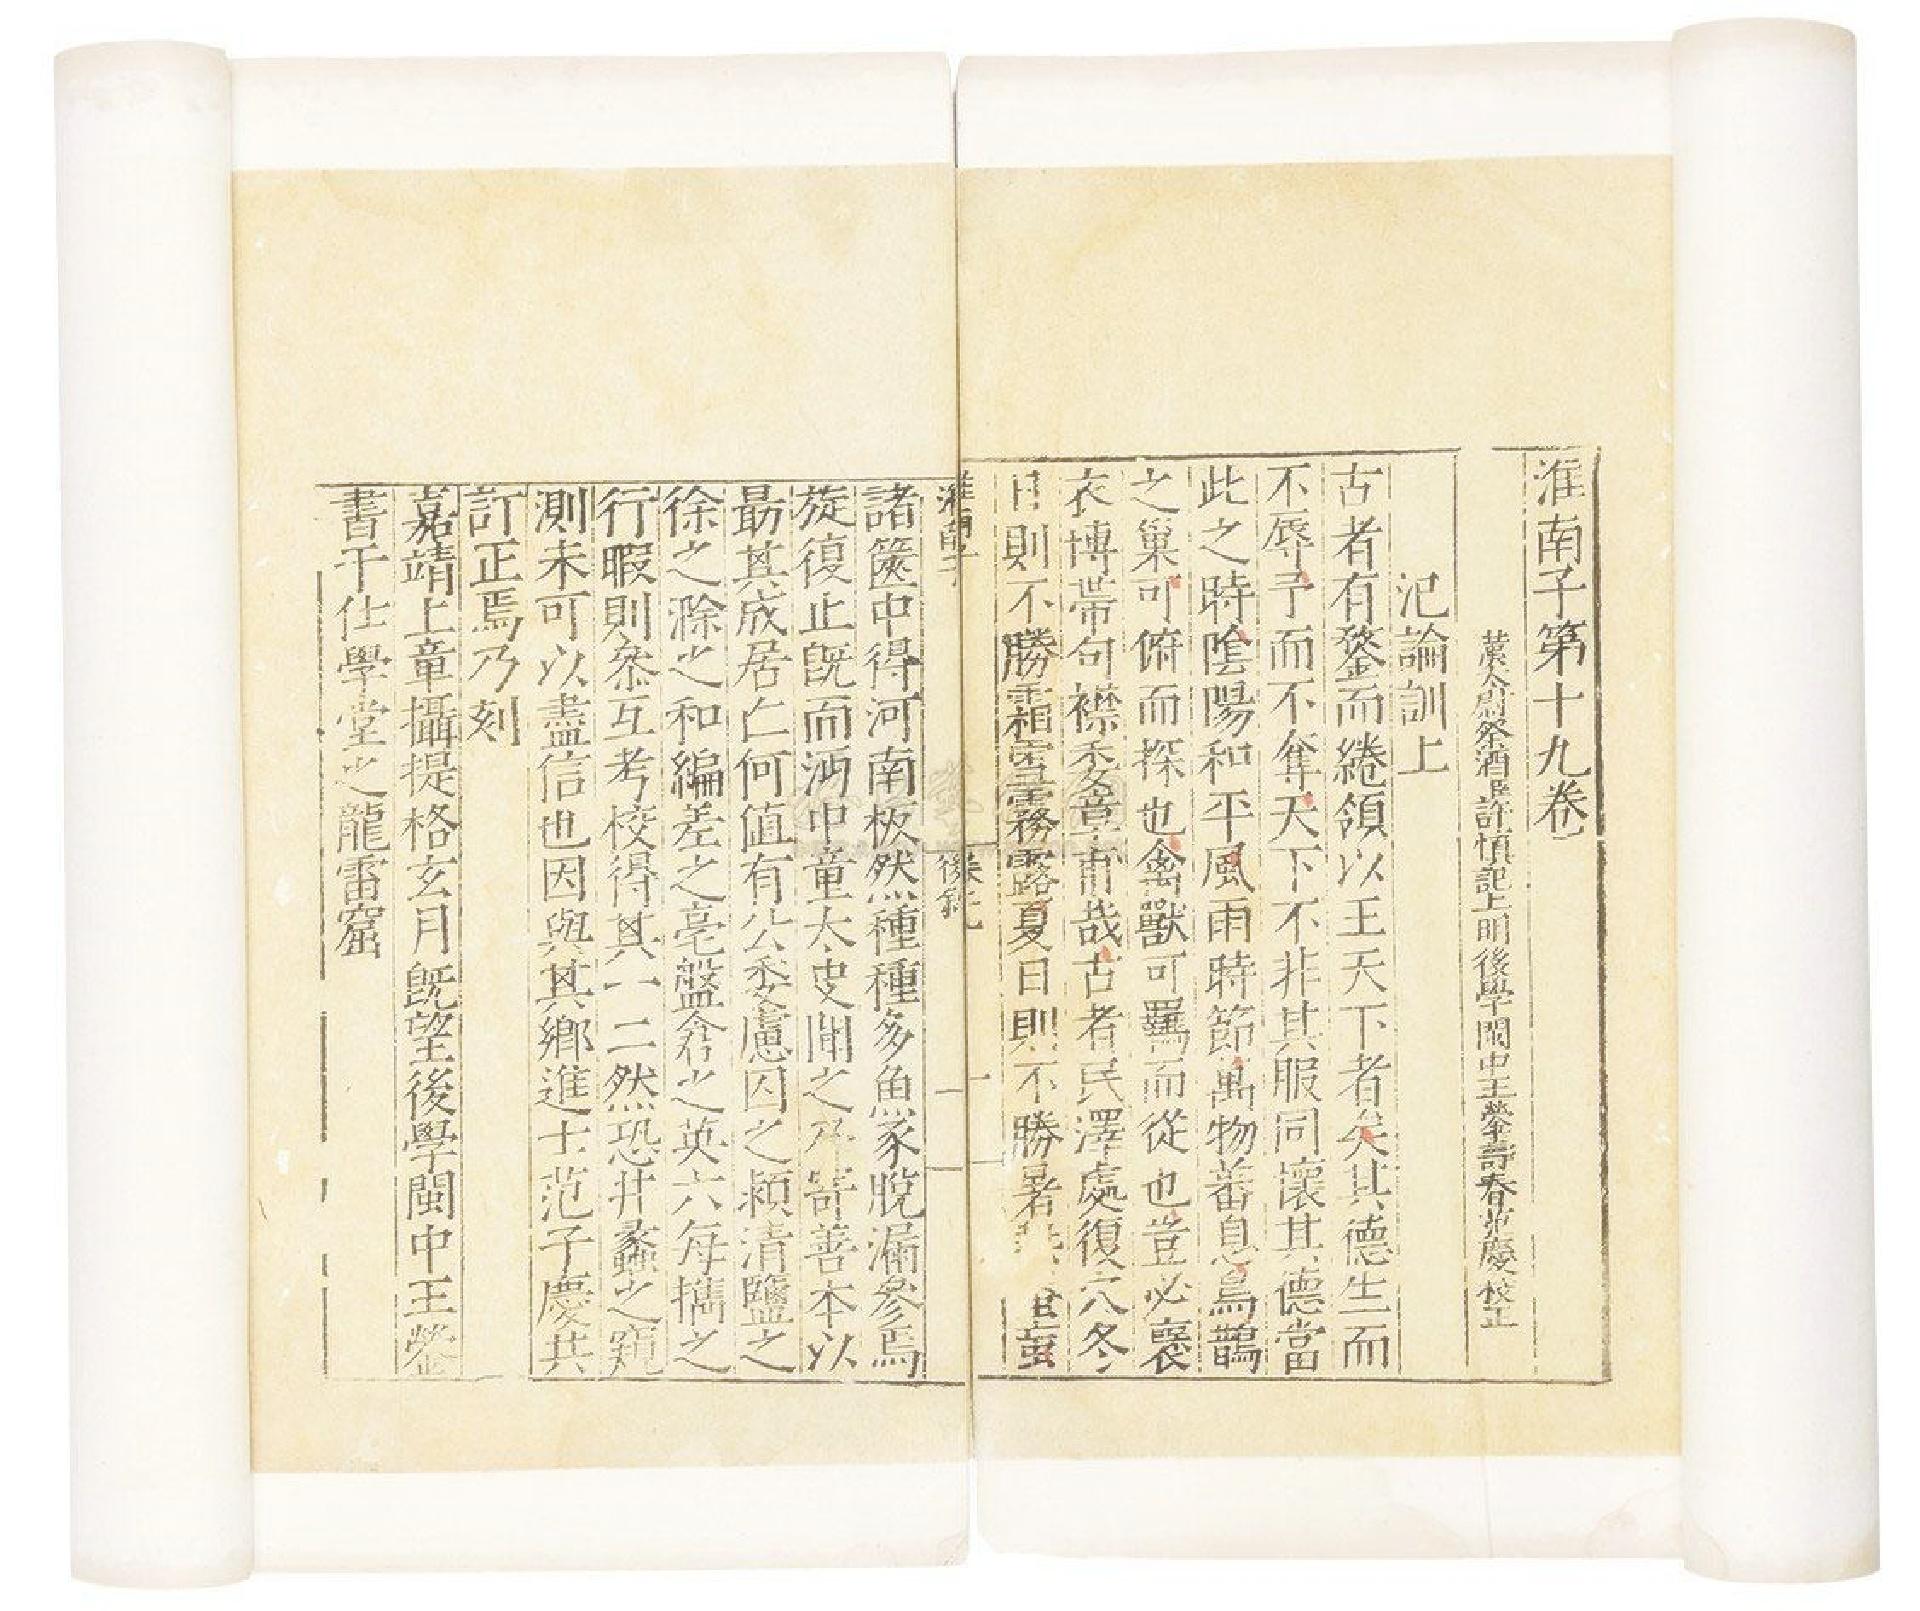 淮南子第十九卷
漢太尉祭酒臣許慎記上明後學閩中王鎣壽春范慶校正
氾論訓上
古者有鍪而綣領以王天下者矣其德生而
不辱予而不奪天下不非其服同懷其德當
此之時陰陽和平風雨時節萬物蕃息烏鵲
之巢可俯而探也禽獸可羈而從也豈必襃
衣博帶句襟委章甫哉古者民澤處復穴冬
日則不勝霜雪霧露夏日則不勝暑 蟁
淮南子
後敘
諸篋中得河南板然種種多魚豕脫漏參焉
旋復止旣而沔中童太史聞之乃寄善本以
最其成居亡何值有公委慮囚之潁清鹽之
徐之滁之和編差之亳盤倉之英六每攜之
行暇則叅互考校得其一二然恐井蠡之窺
測未可以盡信也因與其鄉進士范子慶共
訂正焉乃刻
嘉靖上章攝提格玄月旣望後學閩中王鎣
書于仕學堂之龍雷窟